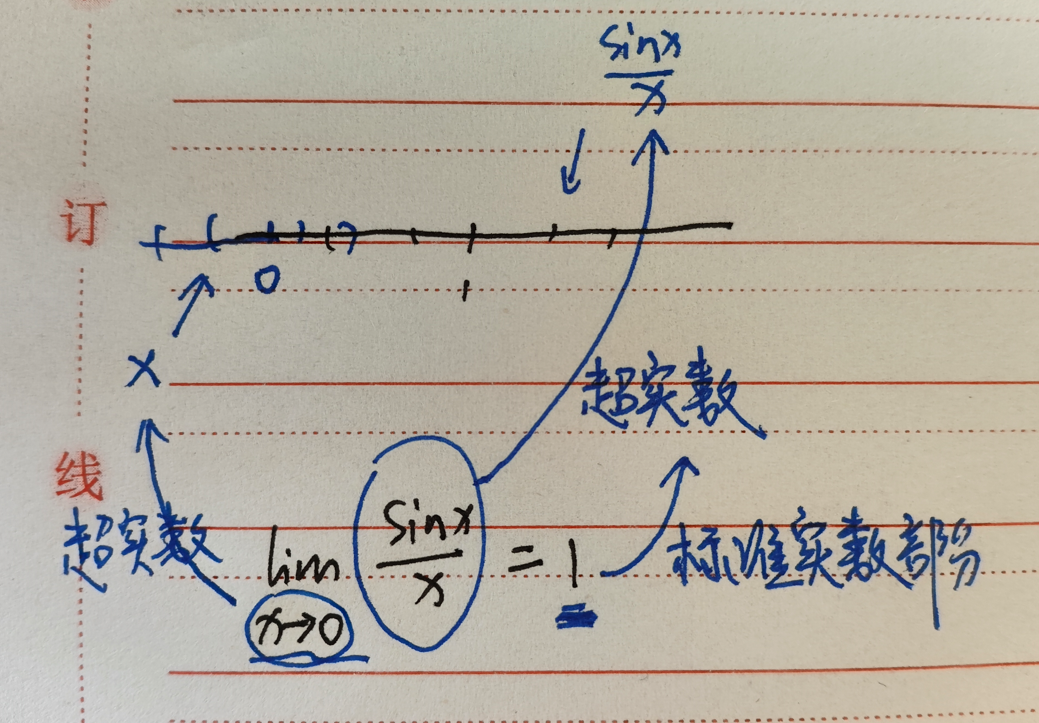 sinx/x
订
0 1
x
超实数
线
超实数 lim x→0 sinx/x = 1 标准实数部分